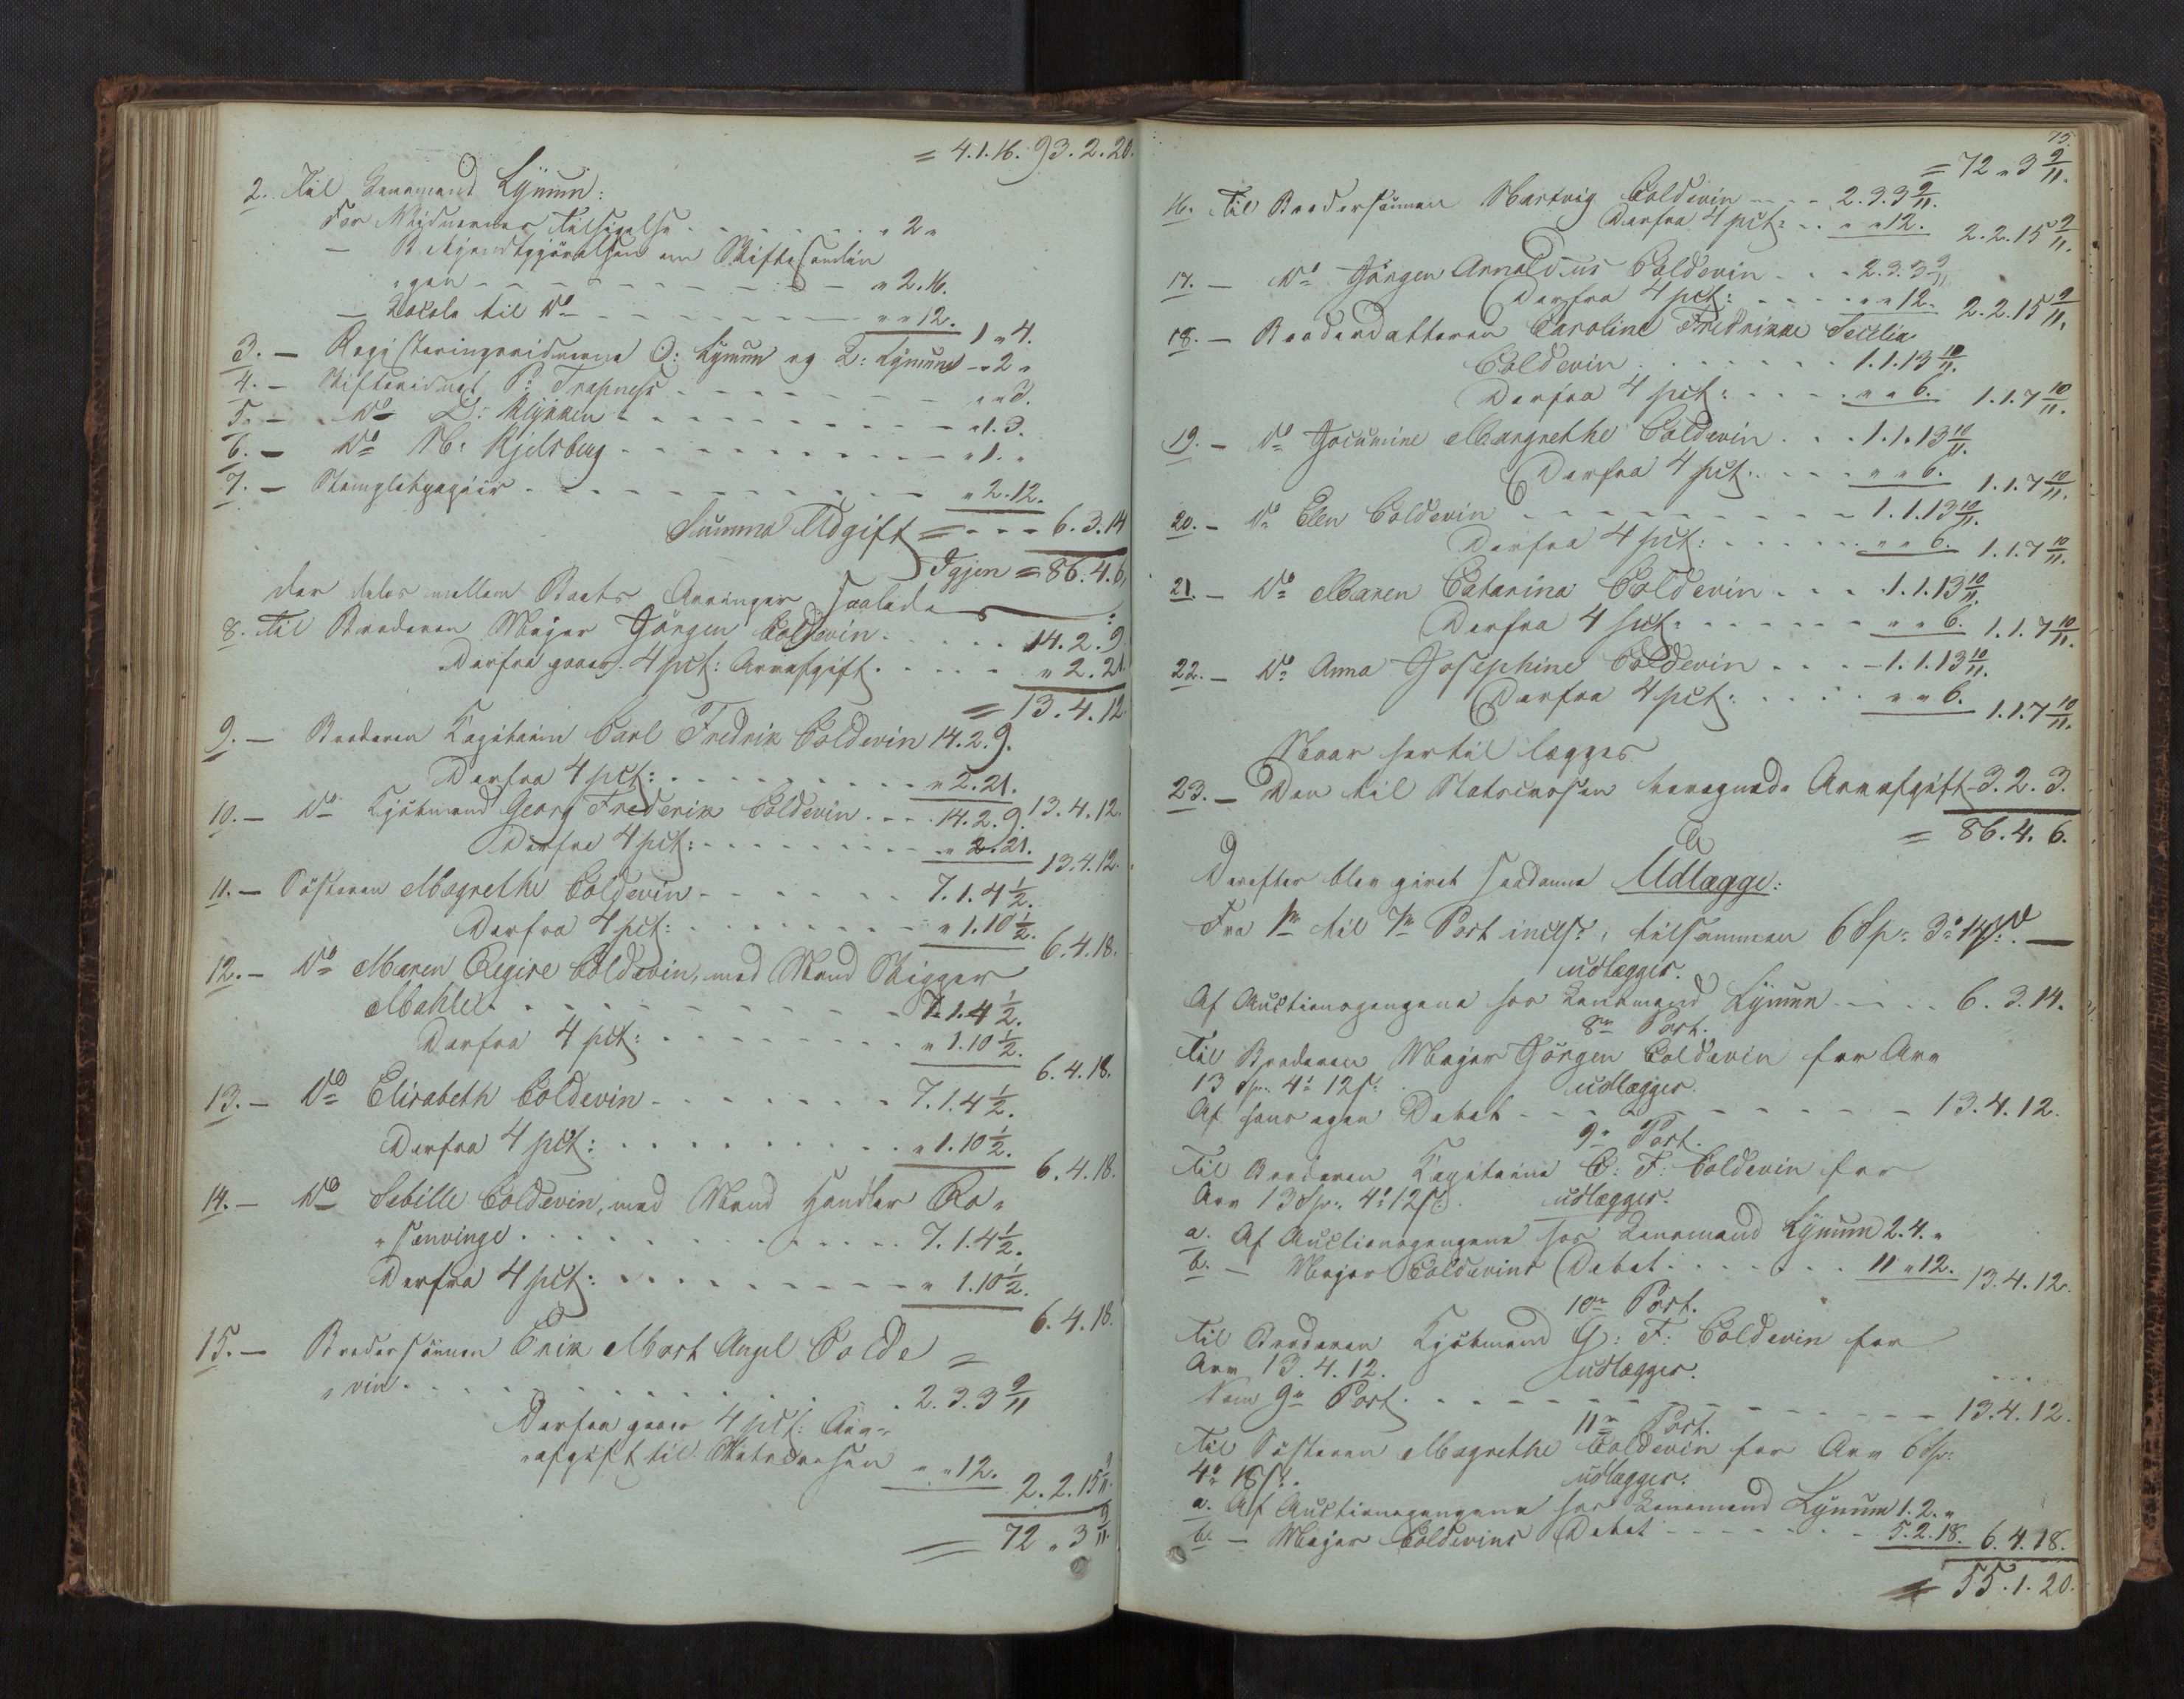 = 4.1.16. 93.2.20.
2. Til Lensmand Lynum:
For Vidnernes Tilsigelse - - - - - " 2 "
— Bekjendtgjörelsen om Skiftesamlin
"gen - - - - - - - - " 2.16.
— Locale til Do - - - - - " " 12.
1 " 4.
3. — Registeringsvidnerne O: Lynum og L: Lynum - " 2 "
4. — Skiftevidnet P: Trapnes - - - - - " " 3.
5. — Do L: Klykken - - - - - " 1.3.
6. — Do M: Kjelsberg - - - - - " 1. "
7. — Stempletpapiir - - - - - " 2.12.
Summa Udgift = - - - 6.3.14
Igjen = 86.4.6,
der deles mellem Boets Arvinger saaledes:
8. Til Broderen Major Jörgen Coldevin - - - 14.2.9
Derfra gaaer 4 pct: Arveafgift - - - " 2.21
= 13.4.12.
9. — Broderen Kapitain Carl Fredrik Coldevin 14.2.9.
Derfra 4 pct: - - - - - " 2.21.
13.4.12.
10. — Do Kjöbmand Georg Frederik Coldevin - - - 14.2.9.
Derfra 4 pct: - - - - - " 2.21.
13.4.12.
11. — Sösteren Magrethe Coldevin - - - - - 7.1.4 1/2.
Derfra 4 pct: - - - - - " 1.10 1/2.
6.4.18.
12. — Do Maren Regine Coldevin, med Mand Skipper
Mahle - - - - - 7.1.4 1/2.
Derfra 4 pct: - - - - - " 1.10 1/2.
6.4.18.
13. — Do Elisabeth Coldevin - - - - - 7.1.4 1/2.
Derfra 4 pct: - - - - - " 1.10 1/2.
6.4.18.
14. — Do Sebille Coldevin, med Mand Handler Ro"
"senvinge - - - - - 7.1.4 1/2.
Derfra 4 pct: - - - - - " 1.10 1/2.
6.4.18.
15. — Brodersönnen Erik Must Angel Colde =
"vin - - - - - 2.3.3 9/11
Derfra gaaer 4 pct: Arv"
"afgift til Statscassen " " 12.
2.2.15 9/11.
= 72 " 3 9/11.
75.
= 72 " 3 9/11.
16. Til Brodersönnen Hartvig Coldevin - - - 2.3.3 9/11.
Derfra 4 pct: - - " " 12. 2.2.15 9/11.
17. — Do Jörgen Arnoldus Coldevin - - - 2.3.3 9/11
Derfra 4 pct: - - - - " " 12. 2.2.15 9/11.
18. — Broderdatteren Caroline Fredrikke Secilia
Coldevin - - - - - 1.1.13 10/11.
Derfra 4 pct: - - - - " " 6. 1.1.7 10/11.
19. — Do Jocumine Margrethe Coldevin - - - 1.1.13 10/11.
Derfra 4 pct: - - - " " 6. 1.1.7 10/11.
20. — Do Elen Coldevin - - - - - 1.1.13 10/11.
Derfra 4 pct: - - - - - " " 6. 1.1.7 10/11.
21. — Do Maren Catarina Coldevin - - - 1.1.13 10/11.
Derfra 4 pct: - - - - - " " 6. 1.1.7 10/11.
22. — Do Anna Josephine Coldevin - - - 1.1.13 10/11.
Derfra 4 pct: - - - - " " 6. 1.1.7 10/11.
Naar hertil lægges
23. — Den til Statscassen beregnede Arveafgift - 3.2.3.
= 86.4.6.
Derefter blev givet saadanne Udlægge:
Fra 1m til 7m Post incl:, tilsammen 6 Sp: 3# 14s: —
udlægges.
Af Auctionspengene hos Lensmand Lynum - - - 6.3.14.
8m Post.
Til Broderen Major Jörgen Coldevin for Arv
13 Sp: 4# 12s: udlægges.
Af hans egen Debet - - - - - 13.4.12.
9m Post.
Til Broderen Kapitaine C: F: Coldevin for
Arv 13 Sp: 4# 12s: udlægges.
a. Af Auctionspengene hos Lensmand Lynum 2.4. "
b. — Major Coldevins Debet - - - - - 11 " 12. 13.4.12.
10m Post.
Til Broderen Kjöbmand G: F: Coldevin for
Arv 13.4.12. udlægges.
Som 9m Post - - - - - 13.4.12.
11m Post.
Til Sösteren Magrethe Coldevin for Arv 6 Sp:
4# 18s:. udlægges.
a. Af Auctionspengene hos Lensmand Lynum 1.2. "
b. — Major Coldevins Debet - - - - - 5.2.18. 6.4.18.
= 55.1.20.